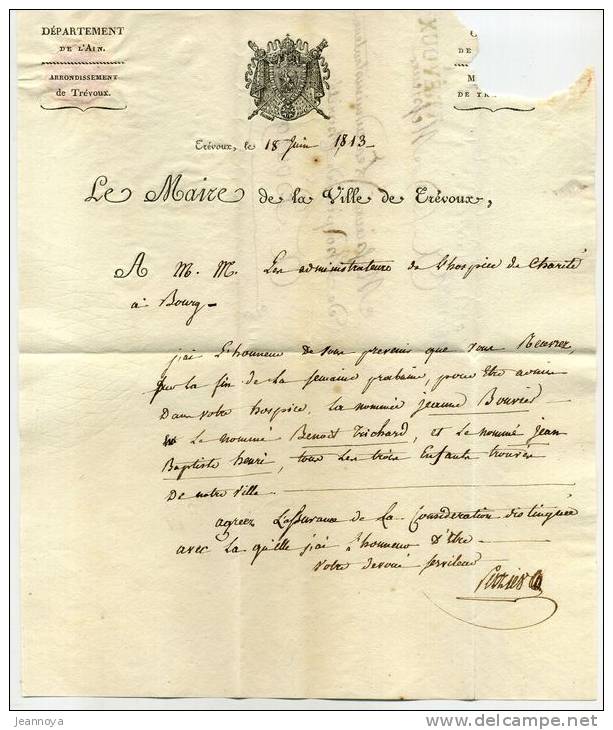 DÉPARTEMENT
DE L'AIN.
ARRONDISSEMENT
de Trévoux.
DE
M
DE TR
Trévoux, le 18 Juin 1813
Le Maire de la Ville de Trévoux,
A M. M. Les administrateurs de L'hospice de Charité
à Bourg
j'ai L'honneur de vous prevenir que vous Recevrez,
sur la fin de La semaine prochaine, pour être admis
Dans votre hospice, La nommée jeanne Bouvier
Le nommé Benoit Trichard, et Le nommé jean
Baptiste henri, tous Les trois Enfants trouvés
De notre ville
agreez L'assurance de La Consideration distinguée
avec La qu'elle j'ai L'honneur d'être
Votre devoué serviteur
jeannoya
www.delcampe.net